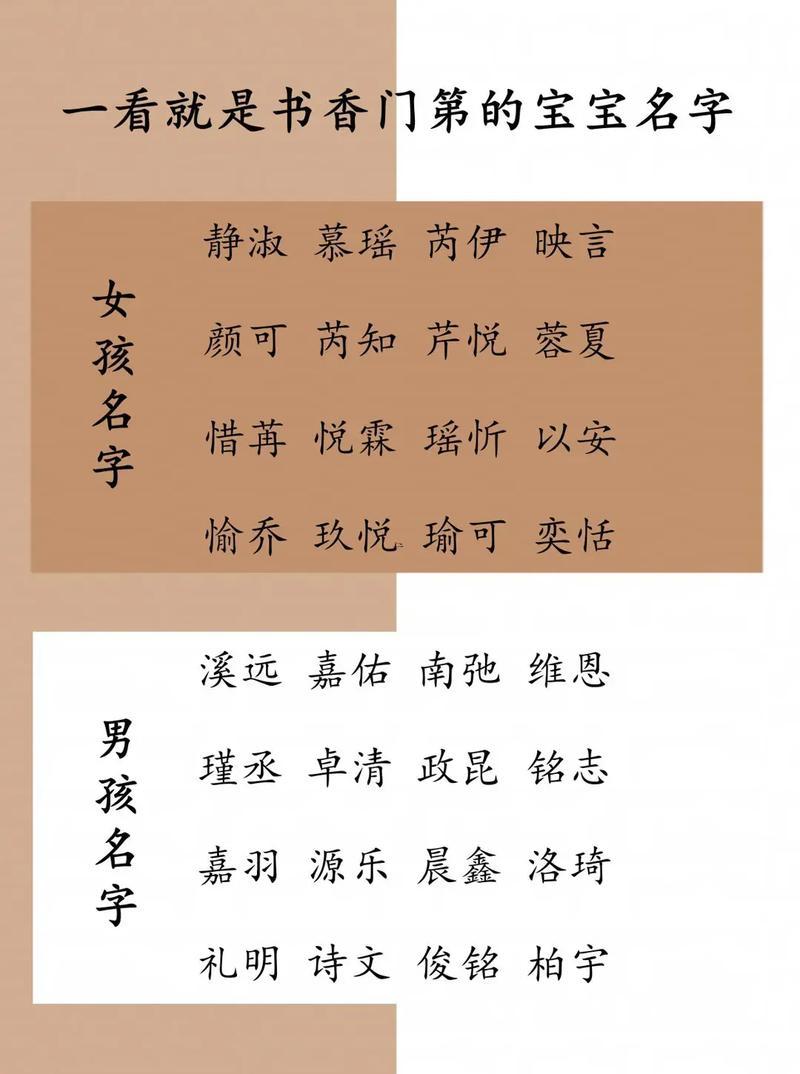 一看就是书香门第的宝宝名字
女孩名字
静淑 慕瑶 芮伊 映言
颜可 芮知 芹悦 蓉夏
惜苒 悦霖 瑶忻 以安
愉乔 玖悦 瑜可 奕恬
男孩名字
溪远 嘉佑 南弛 维恩
瑾丞 卓清 政昆 铭志
嘉羽 源乐 晨鑫 洛琦
礼明 诗文 俊铭 柏宇